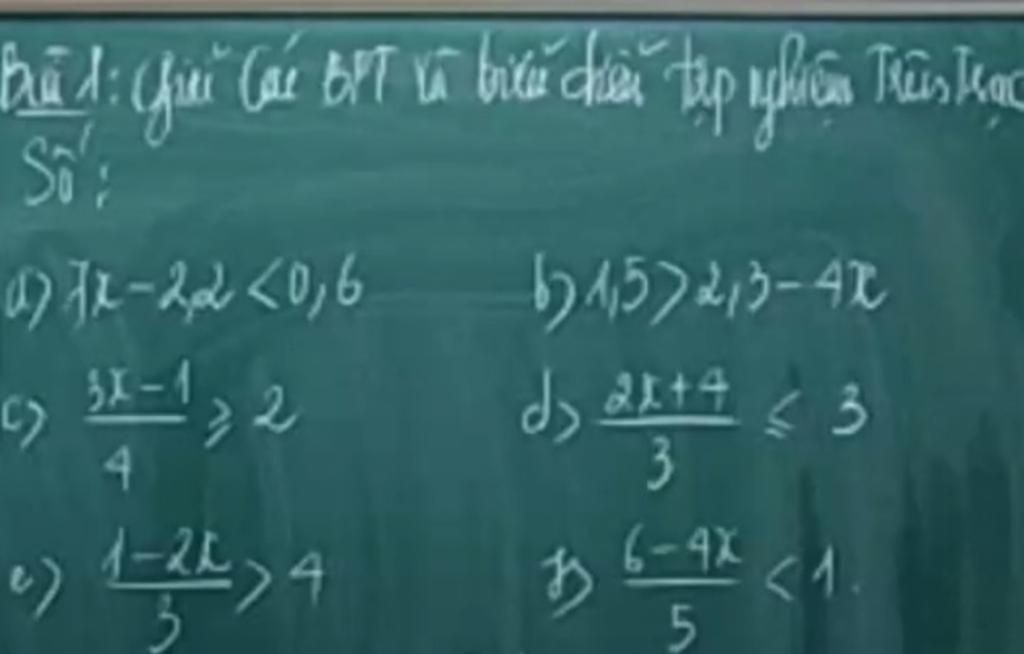 Bài 1: Giải các BPT và biểu diễn tập nghiệm trên trục
Số:
a) 7x - 2,2 < 0,6 b) 1,5 > 2,3 - 4x
c) (3x - 1)/4 ≥ 2 d) (2x + 4)/3 ≤ 3
e) (1 - 2x)/3 > 4 f) (6 - 4x)/5 < 1.